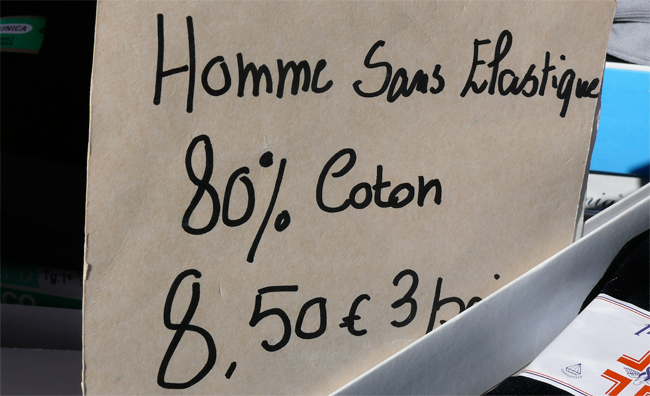 UNICA
Homme Sans Elastique
80% Coton
8,50 € 3